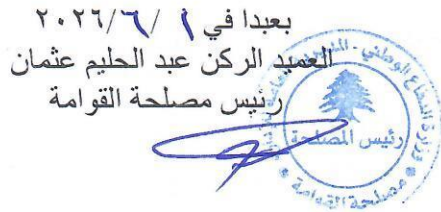 بعبدا في ١ /٦/ ٢٠٢٦
العميد الركن عبد الحليم عثمان
رئيس مصلحة القوامة
وزارة الدفاع الوطني -
رئيس المصلحة
مصلحة القوامة